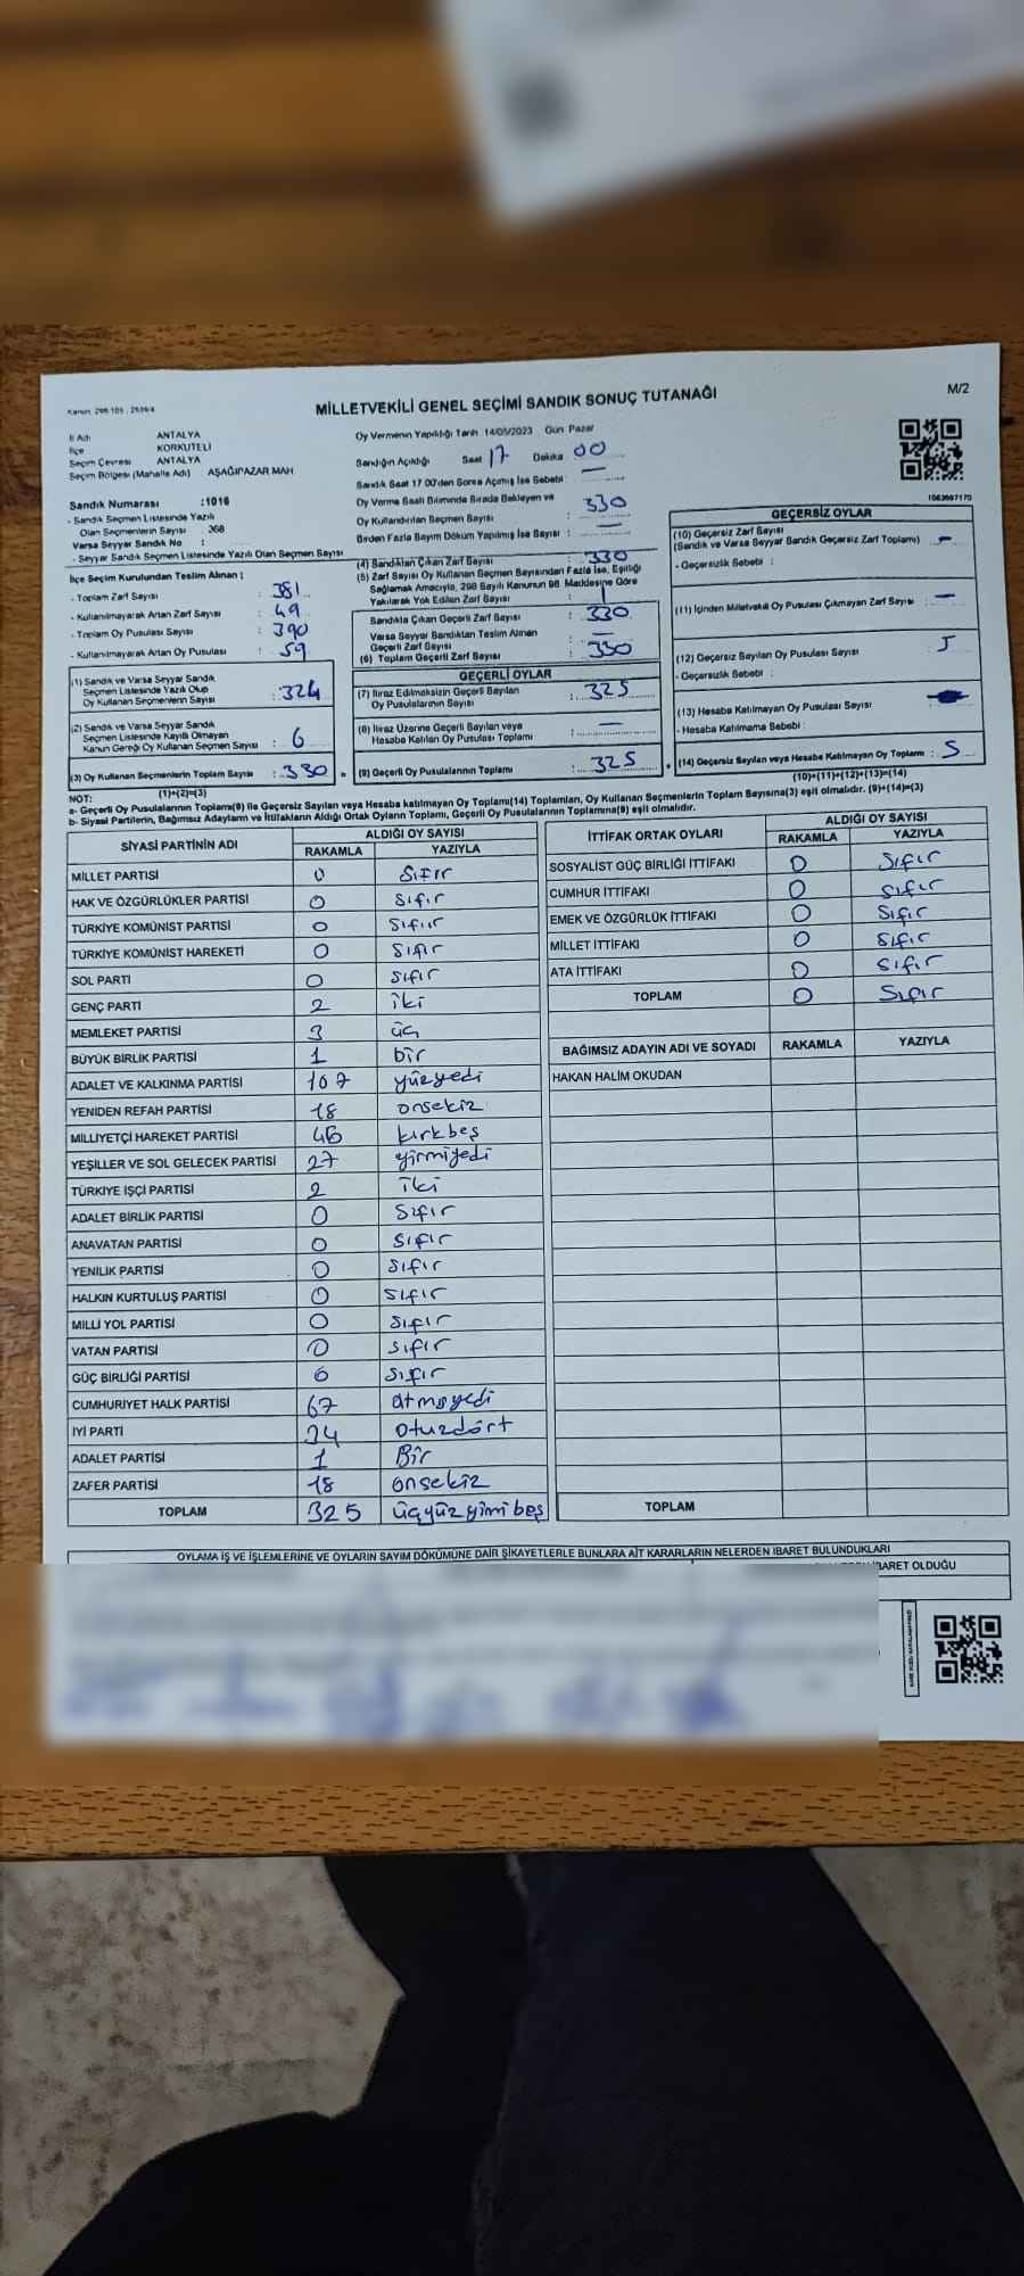 Kanun: 298/105 , 2839/4
MİLLETVEKİLİ GENEL SEÇİMİ SANDIK SONUÇ TUTANAĞI
M/2
İl Adı ANTALYA
İlçe KORKUTELİ
Seçim Çevresi ANTALYA
Seçim Bölgesi (Mahalle Adı) AŞAĞIPAZAR MAH
Sandık Numarası :1016
- Sandık Seçmen Listesinde Yazılı
Olan Seçmenlerin Sayısı : 368
Varsa Seyyar Sandık No :
- Seyyar Sandık Seçmen Listesinde Yazılı Olan Seçmen Sayısı
Oy Vermenin Yapıldığı Tarih 14/05/2023 Gün Pazar
Sandığın Açıldığı Saat 17 Dakika 00
Sandık Saat 17.00'den Sonra Açılmış İse Sebebi : —
Oy Verme Saati Bitiminde Sırada Bekleyen ve
Oy Kullandırılan Seçmen Sayısı : 330
Birden Fazla Sayım Döküm Yapılmış İse Sayısı : —
1063697170
İlçe Seçim Kurulundan Teslim Alınan :
- Toplam Zarf Sayısı : 381
- Kullanılmayarak Artan Zarf Sayısı : 49
- Toplam Oy Pusulası Sayısı : 390
- Kullanılmayarak Artan Oy Pusulası : 59
(1) Sandık ve Varsa Seyyar Sandık
Seçmen Listesinde Yazılı Olup
Oy Kullanan Seçmenlerin Sayısı : 324
(2) Sandık ve Varsa Seyyar Sandık
Seçmen Listesinde Kayıtlı Olmayan
Kanun Gereği Oy Kullanan Seçmen Sayısı : 6
(3) Oy Kullanan Seçmenlerin Toplam Sayısı : 330
(1)+(2)=(3)
(4) Sandıktan Çıkan Zarf Sayısı : 330
(5) Zarf Sayısı Oy Kullanan Seçmen Sayısından Fazla İse, Eşitliği
Sağlamak Amacıyla, 298 Sayılı Kanunun 98. Maddesine Göre
Yakılarak Yok Edilen Zarf Sayısı :
Sandıkta Çıkan Geçerli Zarf Sayısı : 330
Varsa Seyyar Sandıktan Teslim Alınan
Geçerli Zarf Sayısı : —
(6) Toplam Geçerli Zarf Sayısı : 330
GEÇERLİ OYLAR
(7) İtiraz Edilmeksizin Geçerli Sayılan
Oy Pusulalarının Sayısı : 325
(8) İtiraz Üzerine Geçerli Sayılan veya
Hesaba Katılan Oy Pusulası Toplamı : —
(9) Geçerli Oy Pusulalarının Toplamı : 325
GEÇERSİZ OYLAR
(10) Geçersiz Zarf Sayısı
(Sandık ve Varsa Seyyar Sandık Geçersiz Zarf Toplamı) : —
- Geçersizlik Sebebi :
(11) İçinden Milletvekili Oy Pusulası Çıkmayan Zarf Sayısı : —
(12) Geçersiz Sayılan Oy Pusulası Sayısı : 5
- Geçersizlik Sebebi :
(13) Hesaba Katılmayan Oy Pusulası Sayısı :
- Hesaba Katılmama Sebebi :
(14) Geçersiz Sayılan veya Hesaba Katılmayan Oy Toplamı : 5
(10)+(11)+(12)+(13)=(14)
NOT:
a- Geçerli Oy Pusulalarının Toplamı(9) ile Geçersiz Sayılan veya Hesaba katılmayan Oy Toplamı(14) Toplamları, Oy Kullanan Seçmenlerin Toplam Sayısına(3) eşit olmalıdır. (9)+(14)=(3)
b- Siyasi Partilerin, Bağımsız Adayların ve İttifakların Aldığı Ortak Oyların Toplamı, Geçerli Oy Pusulalarının Toplamına(9) eşit olmalıdır.
SİYASİ PARTİNİN ADI ALDIĞI OY SAYISI
RAKAMLA YAZIYLA
MİLLET PARTİSİ 0 Sıfır
HAK VE ÖZGÜRLÜKLER PARTİSİ 0 Sıfır
TÜRKİYE KOMÜNİST PARTİSİ 0 Sıfır
TÜRKİYE KOMÜNİST HAREKETİ 0 Sıfır
SOL PARTİ 0 Sıfır
GENÇ PARTİ 2 iki
MEMLEKET PARTİSİ 3 üç
BÜYÜK BİRLİK PARTİSİ 1 bir
ADALET VE KALKINMA PARTİSİ 107 yüzyedi
YENİDEN REFAH PARTİSİ 18 onsekiz
MİLLİYETÇİ HAREKET PARTİSİ kırkbeş
YEŞİLLER VE SOL GELECEK PARTİSİ 27 yirmiyedi
TÜRKİYE İŞÇİ PARTİSİ 2 iki
ADALET BİRLİK PARTİSİ 0 Sıfır
ANAVATAN PARTİSİ 0 Sıfır
YENİLİK PARTİSİ 0 Sıfır
HALKIN KURTULUŞ PARTİSİ 0 Sıfır
MİLLİ YOL PARTİSİ 0 Sıfır
VATAN PARTİSİ 0 Sıfır
GÜÇ BİRLİĞİ PARTİSİ 0 Sıfır
CUMHURİYET HALK PARTİSİ 67 atmışyedi
İYİ PARTİ 34 otuzdört
ADALET PARTİSİ 1 Bir
ZAFER PARTİSİ 18 onsekiz
TOPLAM 325 üçyüzyimibeş
İTTİFAK ORTAK OYLARI ALDIĞI OY SAYISI
RAKAMLA YAZIYLA
SOSYALİST GÜÇ BİRLİĞİ İTTİFAKI 0 Sıfır
CUMHUR İTTİFAKI 0 Sıfır
EMEK VE ÖZGÜRLÜK İTTİFAKI 0 Sıfır
MİLLET İTTİFAKI 0 Sıfır
ATA İTTİFAKI 0 Sıfır
TOPLAM 0 Sıfır
BAĞIMSIZ ADAYIN ADI VE SOYADI RAKAMLA YAZIYLA
HAKAN HALİM OKUDAN
TOPLAM
OYLAMA İŞ VE İŞLEMLERİNE VE OYLARIN SAYIM DÖKÜMÜNE DAİR ŞİKAYETLERLE BUNLARA AİT KARARLARIN NELERDEN İBARET BULUNDUKLARI
İBARET OLDUĞU